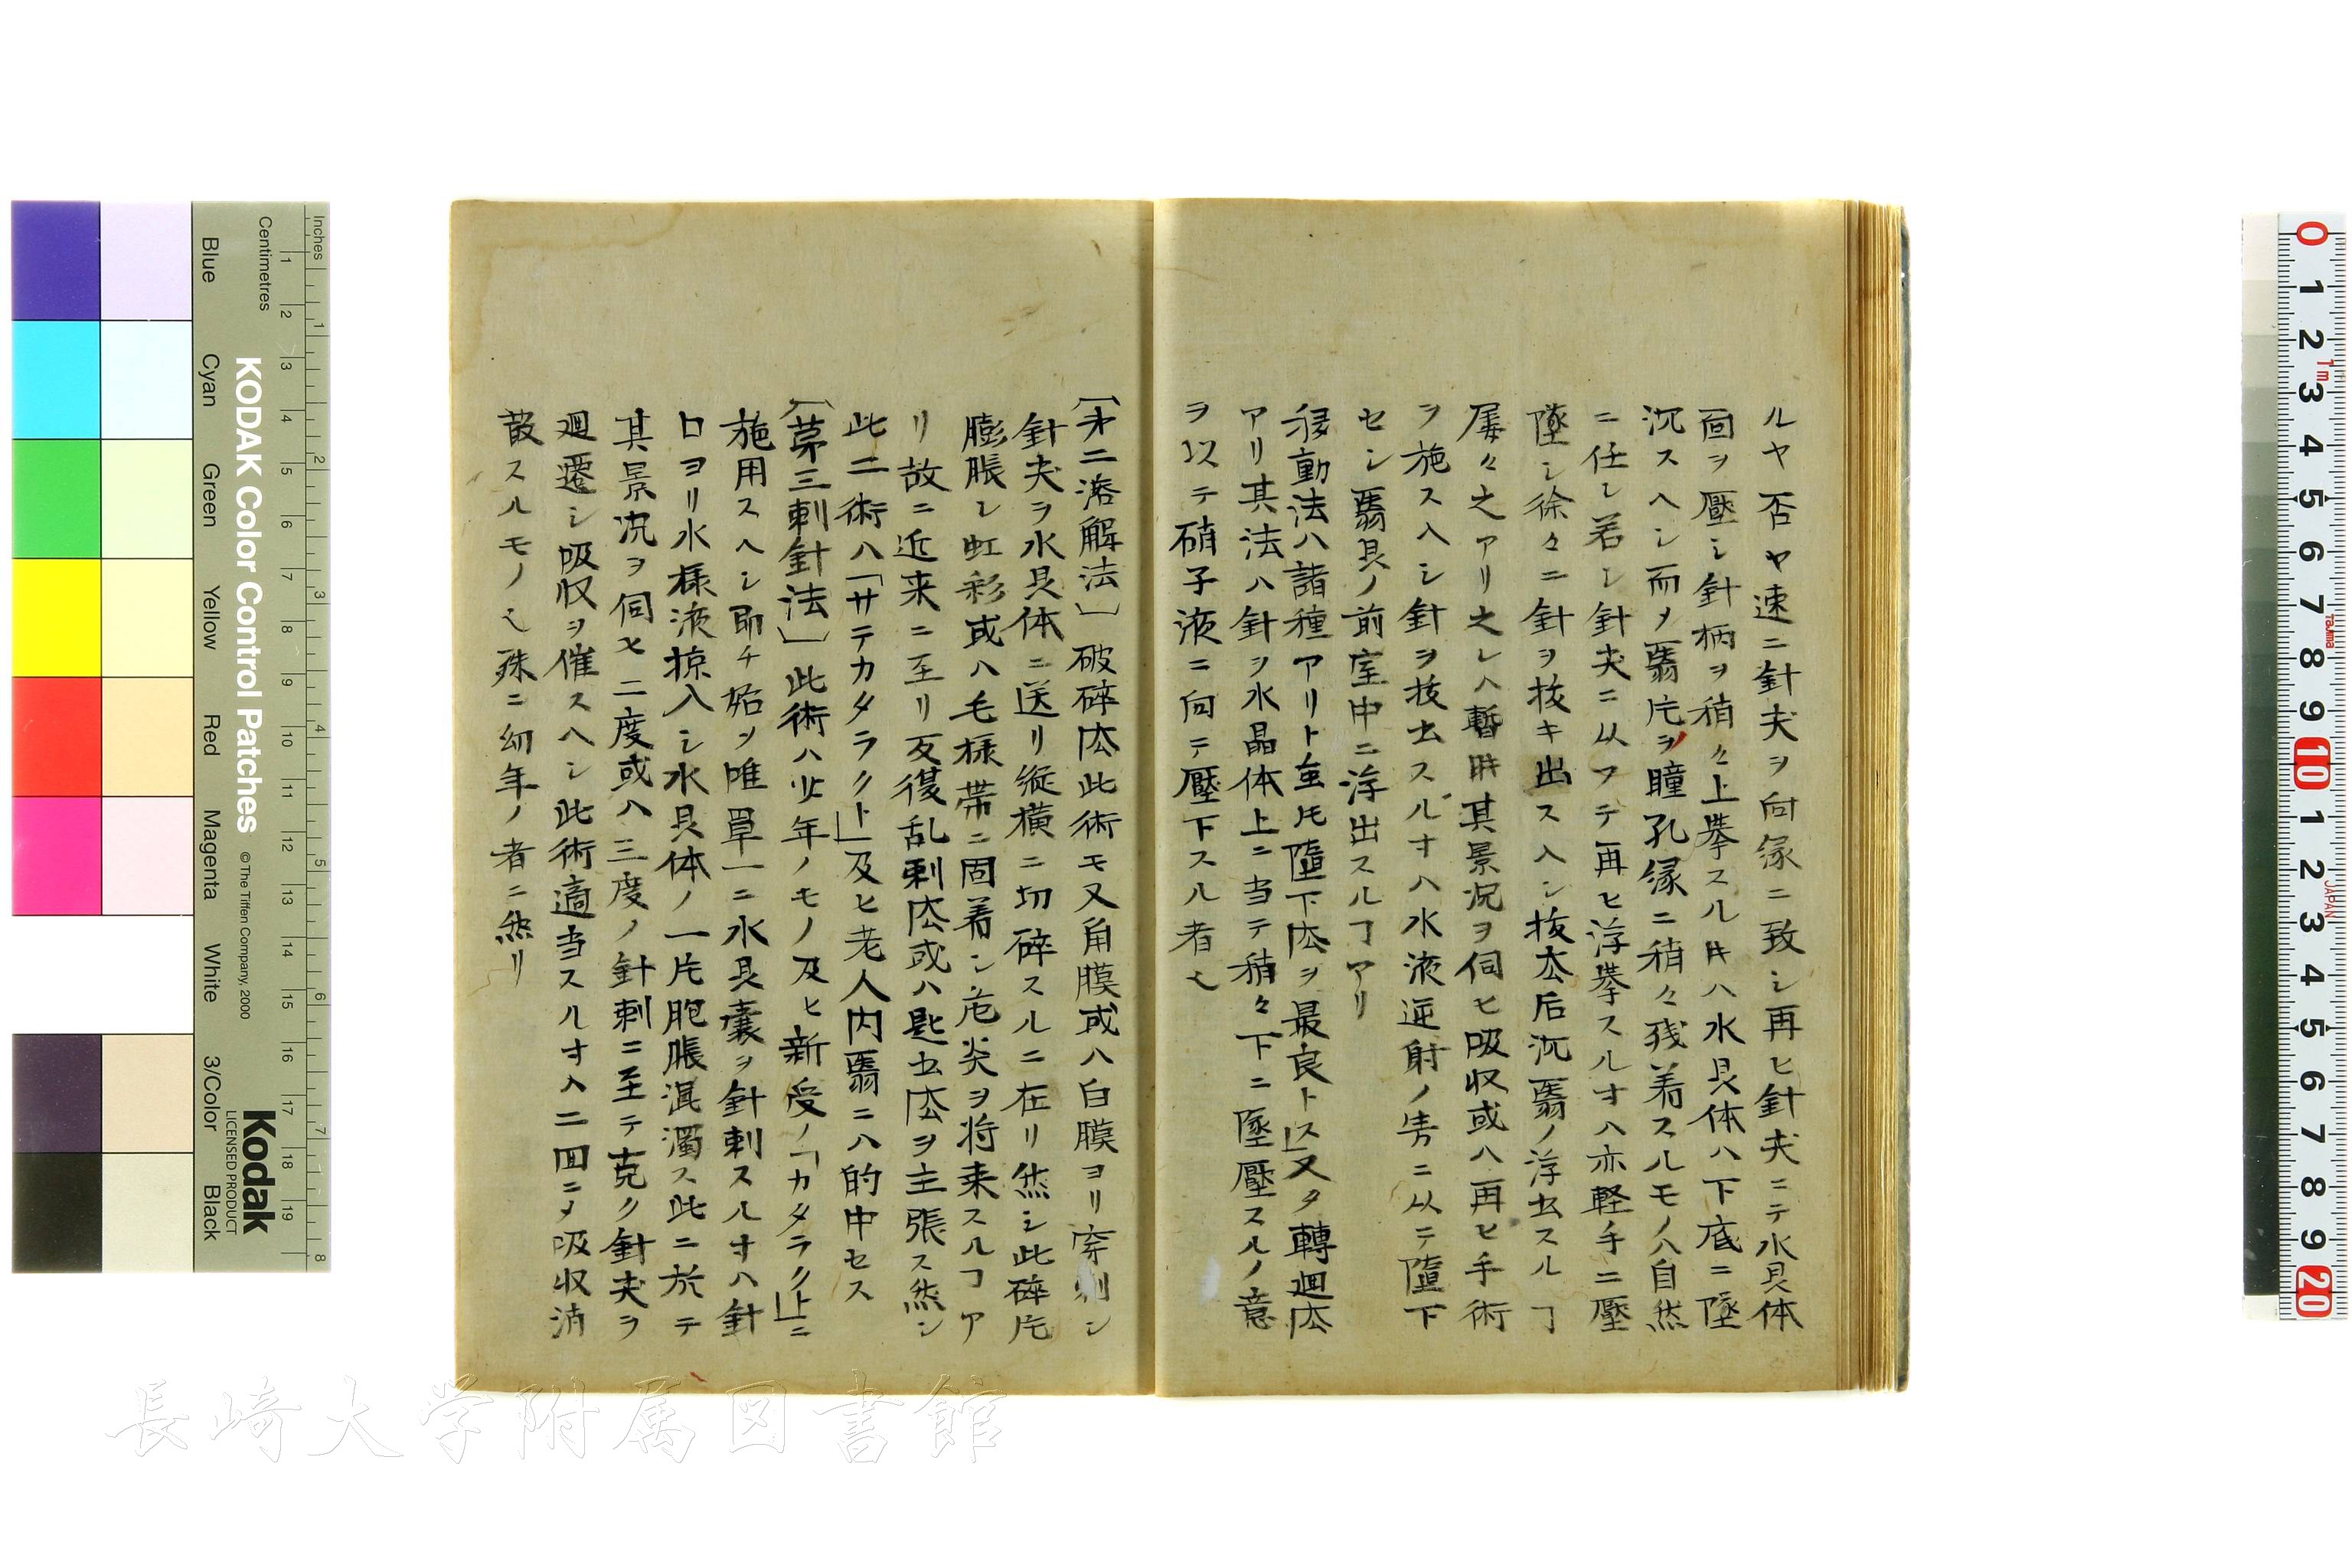 ルヤ否ヤ速ニ針尖ヲ向縁ニ致シ再ヒ針尖ニテ水具体
面ヲ壓シ針柄ヲ稍々上挙スル𪜈ハ水具体ハ下底ニ墜
沉スヘシ而メ翳片ヲ瞳孔縁ニ稍々残着スルモノハ自然
ニ任シ若シ針尖ニ从フテ再ヒ浮挙スルオハ亦軽手ニ壓
墜シ徐々ニ針ヲ抜キ出スヘシ抜去后沉翳ノ浮出スルヿ
屡々之アリ之レハ暫時其景况ヲ伺ヒ吸収或ハ再ヒ手術
ヲ施スヘシ針ヲ抜去スルオハ水液逆射ノ勢ニ从テ墮下
セシ翳具ノ前室中ニ浮出スルヿアリ
移動法ハ諸種アリト虽𪜈墮下法ヲ最良トス又タ轉迴法
アリ其法ハ針ヲ水晶体上ニ当テ稍々下ニ墜壓スルノ意
ヲ以テ硝子液ニ向テ壓下スル者也
〔第二溶解法〕破碎法此術モ又角膜或ハ白膜ヨリ穿刺シ
針尖ヲ水具体ニ送リ縦横ニ切碎スルニ在リ然シ此碎片
膨脹シ虹彩或ハ毛様帯ニ固着シ危炎ヲ将来スルヿア
リ故ニ近来ニ至リ反復乱刺法或ハ匙出法ヲ主張ス然シ
此二術ハ「サテカタラクト」及ヒ老人内翳ニハ的中セス
〔第三刺針法〕此術ハ少年ノモノ及ヒ新受ノ「カタラクト」ニ
施用スヘシ即チ始ヲ唯単一ニ水具嚢ヲ針刺スルオハ針
口ヨリ水様液掠入シ水具体ノ一片胞脹溷濁ス此ニ於テ
其景况ヲ伺ヒ二度或ハ三度ノ針刺ニ至テ克ク針尖ヲ
迴遷シ吸収ヲ催スヘシ此術適当スルオハ二四ニメ吸収消
散スルモノ也殊ニ幼年ノ者ニ然リ
KODAK Color Control Patches
© The Tiffen Company, 2000
Kodak
LICENSED PRODUCT
Inches
Centimetres
Blue Cyan Green Yellow Red Magenta White 3/Color Black
長崎大学附属図書館